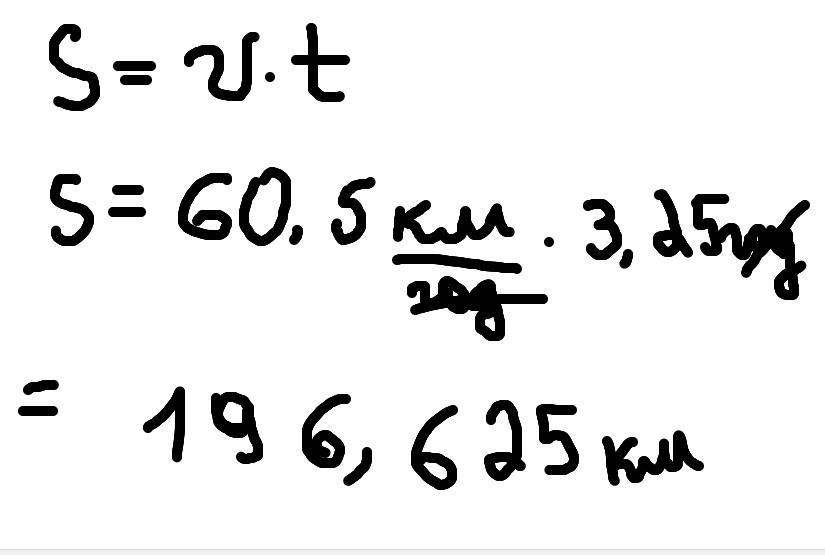 S = v · t
S = 60,5 км/год · 3,25 год
= 196,625 км